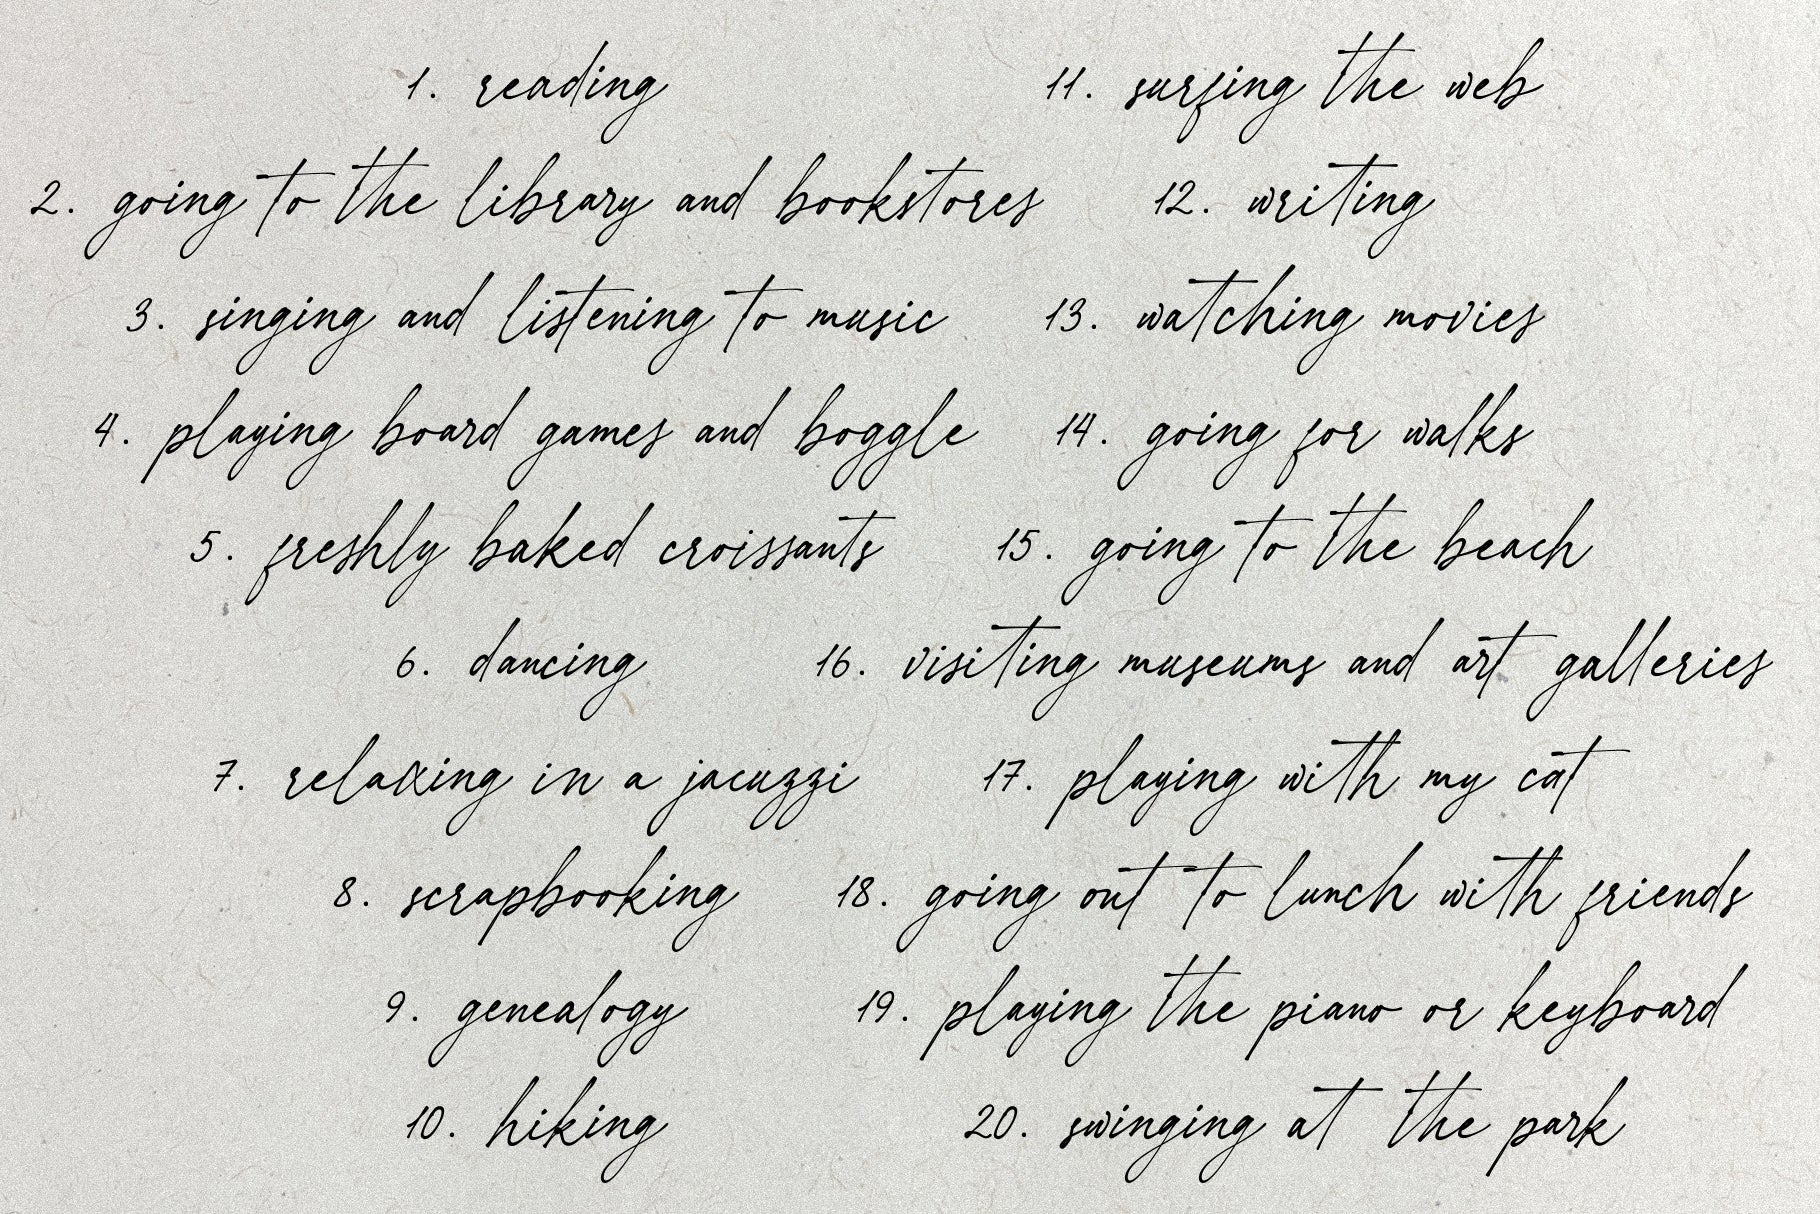 1. reading
2. going to the library and bookstores
3. singing and listening to music
4. playing board games and boggle
5. freshly baked croissants
6. dancing
7. relaxing in a jacuzzi
8. scrapbooking
9. genealogy
10. hiking
11. surfing the web
12. writing
13. watching movies
14. going for walks
15. going to the beach
16. visiting museums and art galleries
17. playing with my cat
18. going out to lunch with friends
19. playing the piano or keyboard
20. swinging at the park